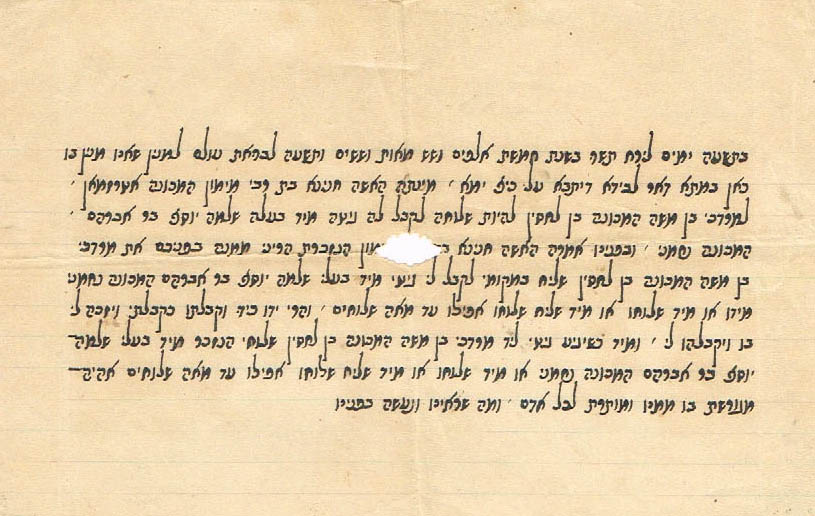 בתשעה ימים לירח תשרי בשנת חמשת אלפים ושש מאות וששים ותשעה לבריאת עולם למנין שאנו מנין בו
כאן במתא דאר לבידא דיתבא על כיף ימא מינתה האשה חנינא בת רבי מימון המכונה
למרדכי בן משה המכונה בן לחסין להיות שלוחה לקבל לה גיטה מיד בעלה שלמה יוסף בר אברהם
המכונה נחמני ובפנינו אמרה האשה חנינא הנזכרת הריני ממנה בפניכם את מרדכי
בן משה המכונה בן לחסין שליח במקומי לקבל לי גיטי מיד בעלי שלמה יוסף בר אברהם המכונה נחמני
מידו או מיד שלוחו או מיד שליח שלוחו אפילו עד מאה שלוחים והרי ידו כידי וקבלתו כקבלתי ויזכה לי
בו ויקבלהו לי ומיד כשיגיע גיטי ליד מרדכי בן משה המכונה בן לחסין שלוחי הנזכר מיד בעלי שלמה
יוסף בר אברהם המכונה נחמני או מיד שלוחו או מיד שליח שלוחו אפילו עד מאה שלוחים אהיה
מגורשת בו ממנו ומותרת לכל אדם ומה שראינו ונעשה בפנינו